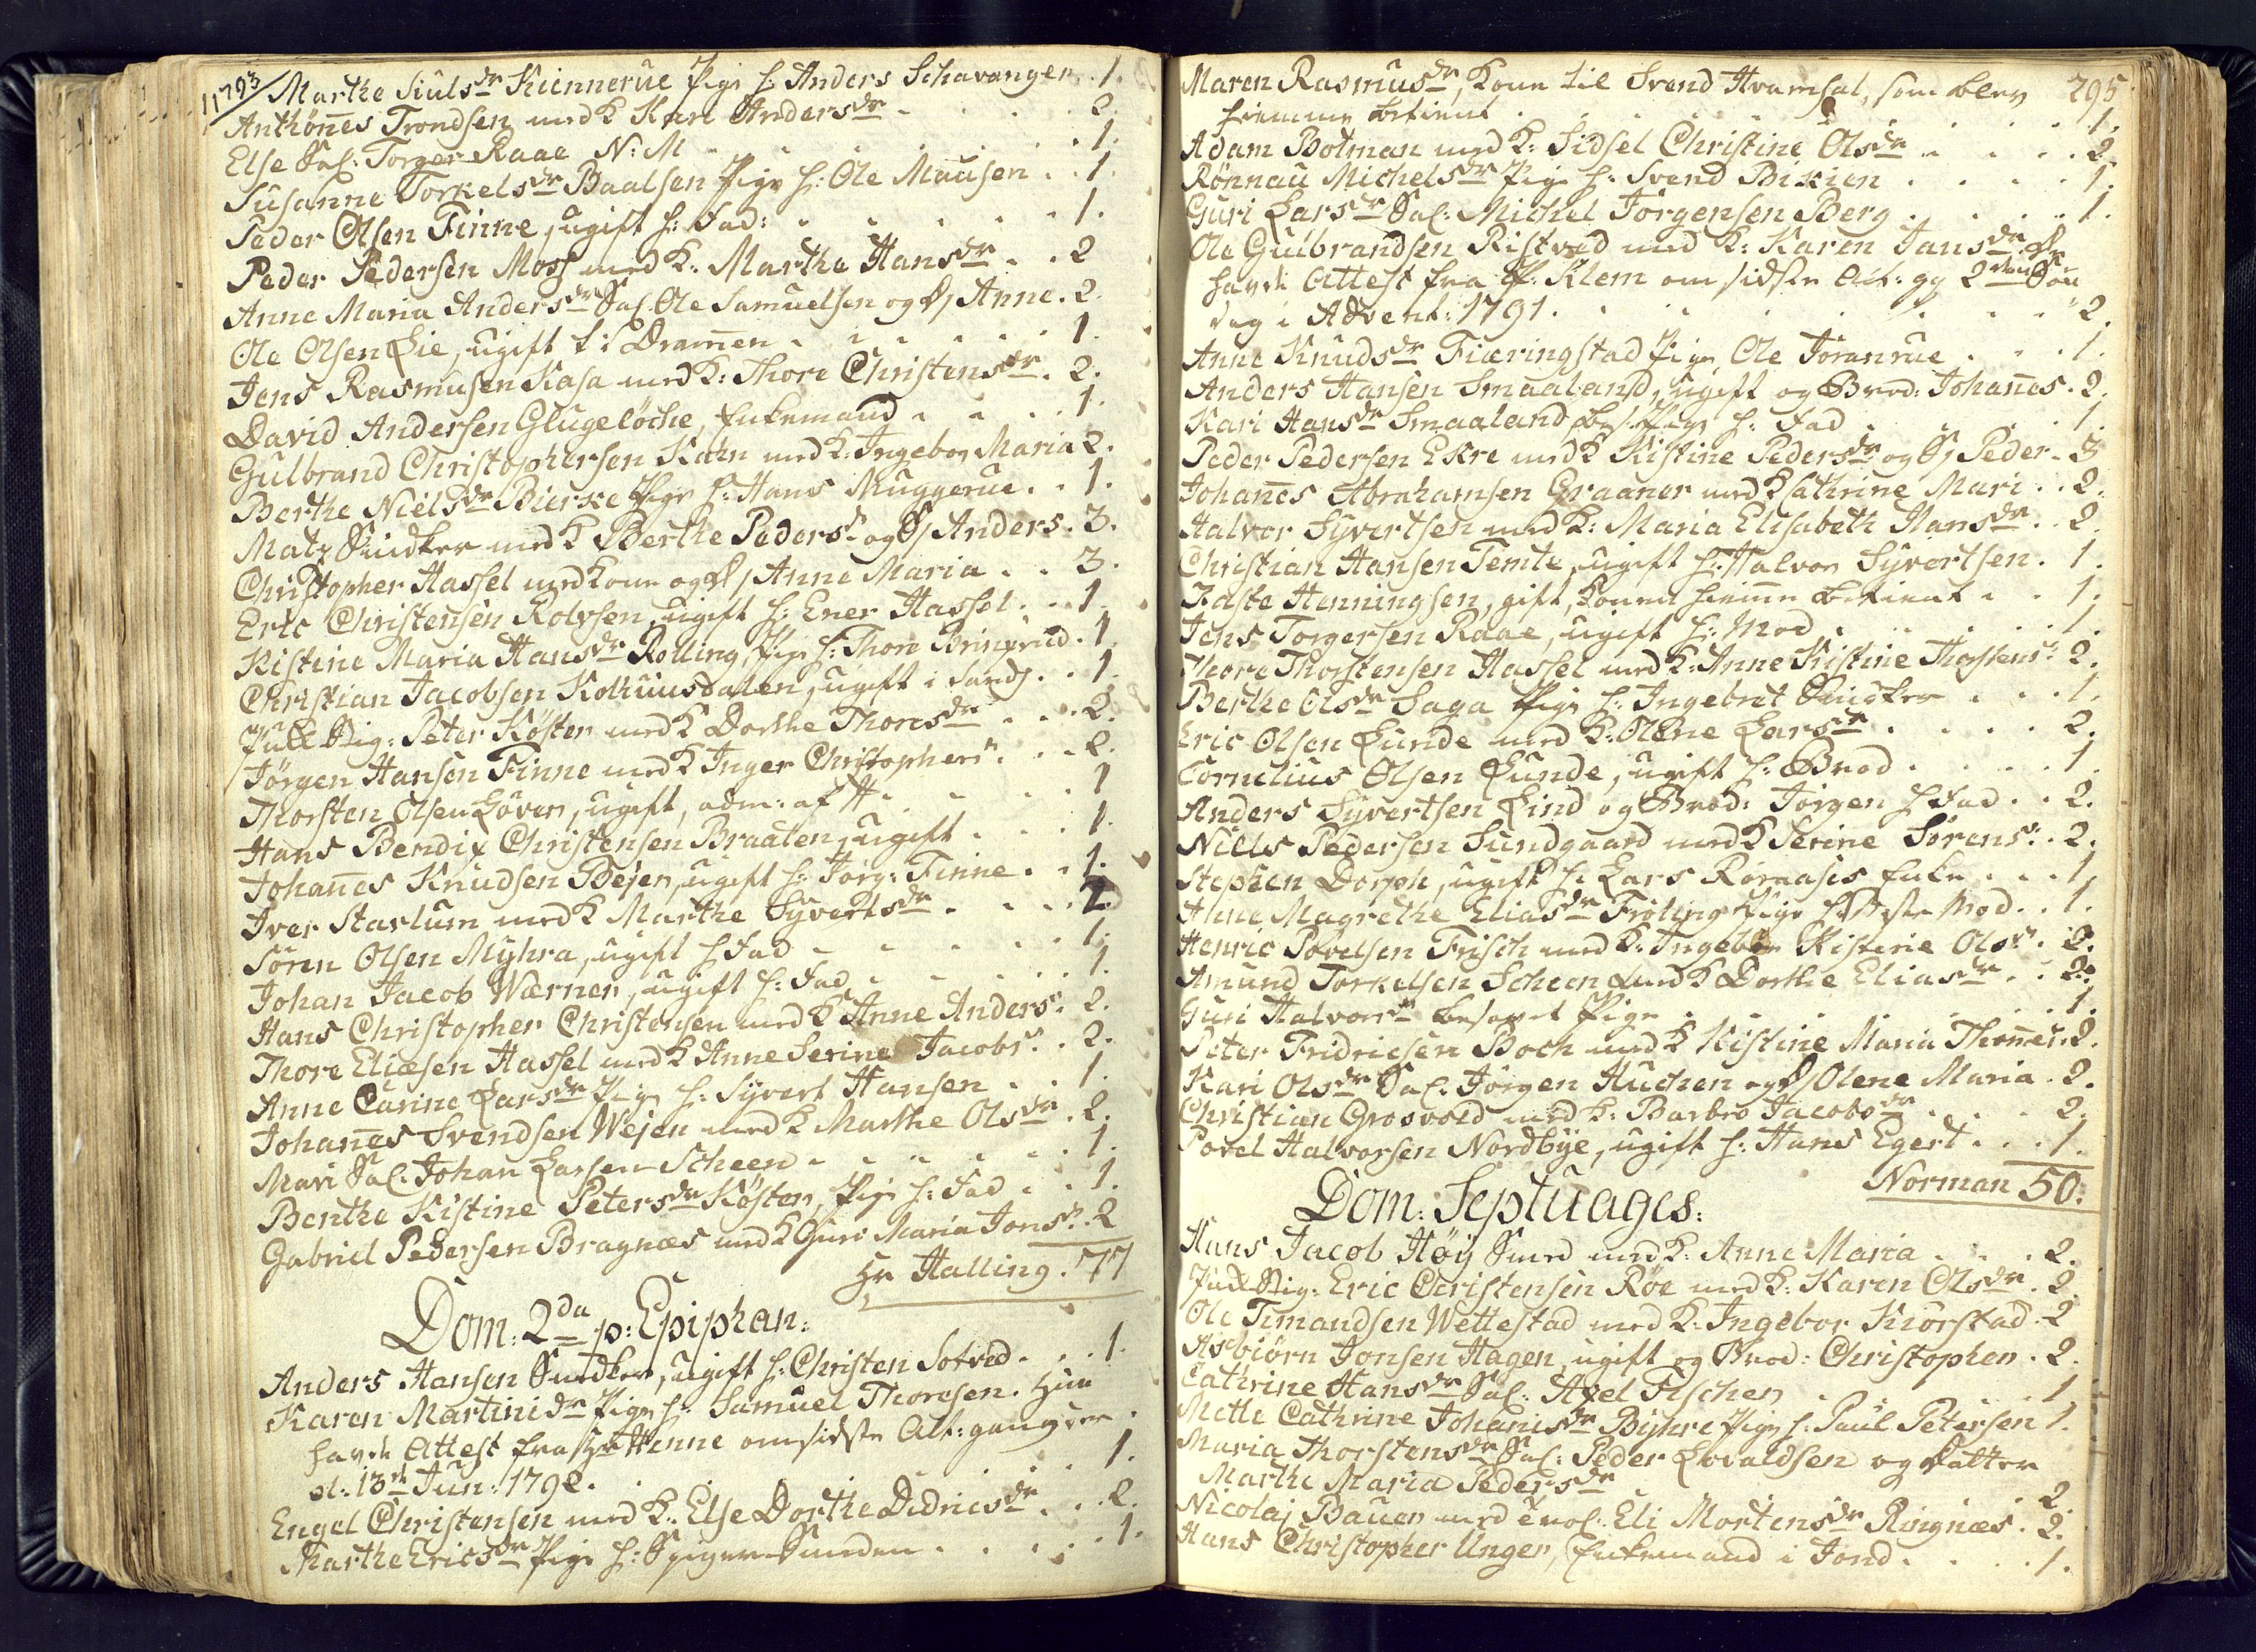 1793
Marthe Siulsdr Kiennerue Pige h: Anders Schavanger . 1.
Anthönnes Trondsen med K Kari Andersdr . 2.
Else Sal: Torger Raae N: M . 1.
Susanne Torkelsdr Baalsen Pige h: Ole Mausen . 1.
Peder Olsen Finne, ugift h: Fad: . 1.
Peder Pedersen Moss med K: Marthe Hansdr . 2
Anne Maria Andersdr Sal. Ole Samuelsen og D/ Anne . 2.
Ole Olsen Lie, ugift t i Dramen . 1.
Jens Rasmusen Kasa med K: Thore Christensdr . 2.
David Andersen Glugeløche, Enkemand . 1.
Gulbrand Christophersen Kørn med K. Ingebor Maria 2.
Berthe Nielsdr Bierke Pige h: Hans Muggerue . 1.
Matz Snidker med K Berthe Pedersdr og S/ Anders . 3.
Christopher Hassel med Kone og D/ Anne Maria . 3.
Eric Christensen Rolvsen, ugift h: Ener Hassel . 1.
Kistine Maria Hansdr Rolling, Pige h: Thore Bringerud . 1
Christian Jacobsen Kothuusdalen, ugift i Sands . 1.
Fuld Pig: Peter Köster med K Dorthe Thoresdr . 2.
Jörgen Hansen Finne med K Inger Christophersdr . 2.
Thorsten Olsen Løver, ugift, adm: af H . 1
Hans Bendix Christensen Braaten, ugift . 1.
Johannes Knudsen Bejer, ugift h: Jörg: Finne . 1.
Iver Starlum med K Marthe Syvertsdr . 2.
Sören Olsen Myhra, ugift h: Fad . 1.
Johan Jacob Wærner, ugift h: Fad . 1.
Hans Christopher Christensen med K Anne Andersdr 2.
Thore Eliæsen Hassel med K Anne Serine Jacobsdr . 2.
Anne Carine Larsdr Pige h: Syvert Hansen . 1.
Johannes Svendsen Wejen med K Marthe Olsdr . 2.
Mari Sal: Johan Larsen Scheen . 1.
Benthe Kistine Petersdr Köster, Pige h: Fad . 1.
Gabriel Pedersen Bragnæs med K Guri Maria Jonsdr . 2
Hr Halling . 77
Dom: 2da p: Epiphan:
Anders Hansen Snidker, ugift h: Christen Sotved . 1.
Karen Martinidr Pige h: Samuel Thoresen. Hun
havde Attest fra Hr Henne om sidste Alt: gang
d: 13de Jun: 1792 . 1.
Engel Christensen med K. Else Dorthe Didricsdr . 2.
Marthe Ericsdr Pige h: Spiger Smeden . 1.
295
Maren Rasmusdr, Kone til Svend Hvamsal, som blev
hiemme betient . 1.
Adam Botman med K: Sidsel Christine Olsdr . 2.
Rønnau Michelsdr Pige h: Svend Bikien . 1.
Guri Larsdr Sal: Michel Jörgensen Berg . 1.
Ole Gulbrandsen Ristved med K: Karen Jansdr De
havde Attest fra Hr. Klem om sidste Alt: gg 2den Søn
dag i Advent: 1791 . 2.
Anne Knudsdr Fiæringstad Pige, Ole Joranrue . 1.
Anders Hansen Smaaland, ugift og Brod: Johannes . 2.
Kari Hansdr Smaaland bes: Pige h: Fad . 1.
Peder Pedersen Ekre med K Kistine Pedersdr og S/ Peder . 3
Johannes Abrahamsen Graaner med K Cathrine Mari . 2.
Halvor Syvertsen med K: Maria Elisabeth Hansdr . 2
Christian Hansen Temte, ugift h: Halvor Syvertsen . 1.
Faste Henningsen, gift, Konen hiemme betient . 1.
Jens Torgersen Raae, ugift h: Mod . 1.
Thore Thorstensen Hassel med K: Anne Kistine Thorstensdr 2.
Berthe Olsdr Saga Pige h: Ingebret Snidker . 1.
Eric Olsen Lunde med K: Olene Larsdr . 2.
Cornelius Olsen Lunde, ugift h: Brod . 1
Anders Syvertsen Lind og Brod: Jörgen h: Fad . 2.
Niels Pedersen Sundgaard med K Serine Sörensdr . 2.
Stephen Dorph, ugift h: Lars Röraasis Enke . 1.
Anne Magrethe Eliasdr Fröling Pige h: Beste Mod . 1.
Henric Povelsen Frisch med K: Ingebor Kistine Olsdr . 2.
Amund Torkelsen Scheen med K Dorthe Eliasdr . 2.
Guri Halvorsdr besovet Pige . 1.
Peter Fridricsen Boch med K Kistine Maria Thommesdr 2.
Kari Olsdr Sal: Jörgen Huchen og D/ Olene Maria . 2.
Christian Grosvold med K: Barbro Jacobsdr . 2.
Povel Halvorsen Nordbye, ugift h: Hans Egert . 1.
Norman 50.
Dom: Septuages:
Hans Jacob Höy Smed med K: Anne Maria . 2.
Fuld Pig: Eric Christensen Röe med K: Karen Olsdr . 2
Ole Timandsen Wettestad med K: Ingebor Kiörstad . 2
Asbiörn Jonsen Hagen, ugift og Brod: Christopher . 2.
Cathrine Hansdr Sal: Axel Fischer . 1
Mette Cathrine Johanisdr Byhre Pige h: Paul Petersen 1.
Maria Thorstensdr Sal: Peder Lovaldsen og Datter
Marthe Maria Pedersdr . 2.
Nicolaj Bauer med trol: Eli Mortensdr Ringnæs . 2.
Hans Christopher Unger, Enkemand i Jond . 1.